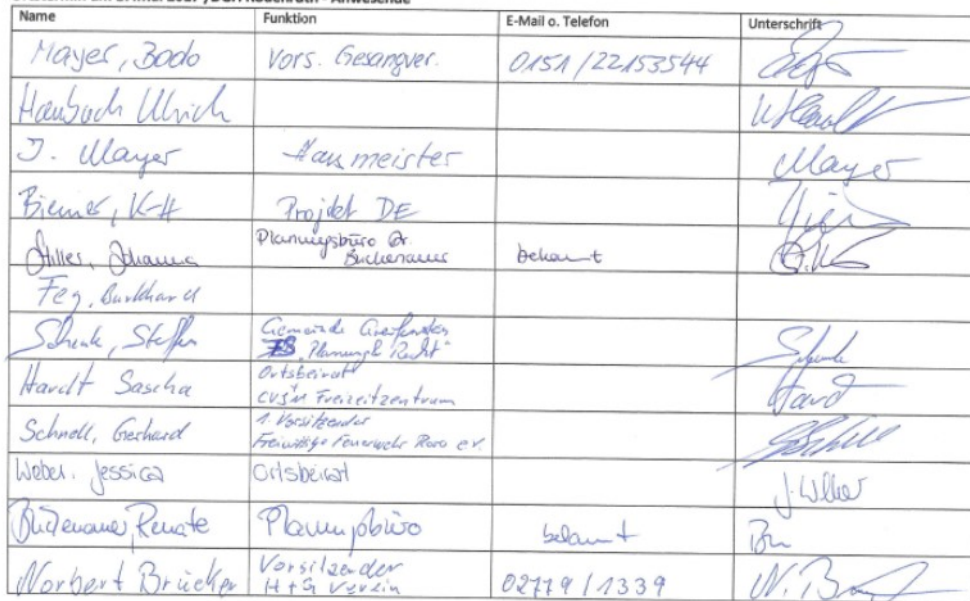 Name Funktion E-Mail o. Telefon Unterschrift
Mayer, Bodo Vors. Gesangver. 0151/22153544
Haubach Ulrich
J. Mayer Hausmeister Mayer
Biemer, K-H Projekt DE
Stiller, Johanna Planungsbüro Dr.
Buchenauer bekannt
Feg, Burkhard
Schenk, Steffen Gemeinde Greifenstein
FB "Planung & Recht"
Hardt Sascha Ortsbeirat
CVJM Freizeitzentrum Hardt
Schnell, Gerhard 1. Vorsitzender
Freiwillige Feuerwehr Roro e.V.
Weber. Jessica Ortsbeirat J. Weber
Buchenauer, Renate Planungsbüro bekannt
Norbert Brücker Vorsitzender
H+G Verein 02779/1339